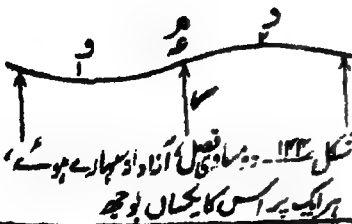 و و
۱ ۲
شکل ۱۳۳ - دو مساوی فصل، سہارے ہوئے،
ہر ایک پر اس کا یکساں بوجھ